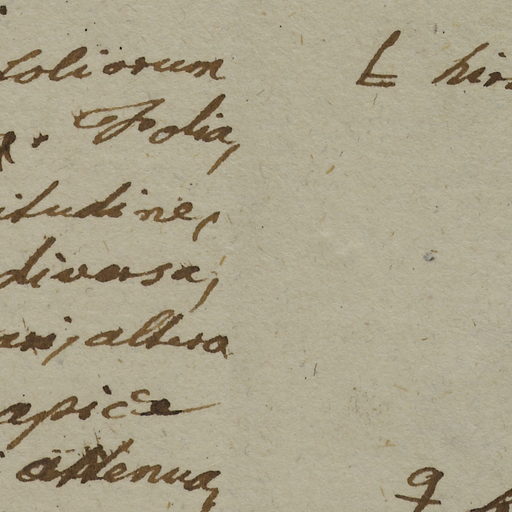 foliorum
Folia,
itudine,
diversa,
altera
apice
attenua,
t hirs